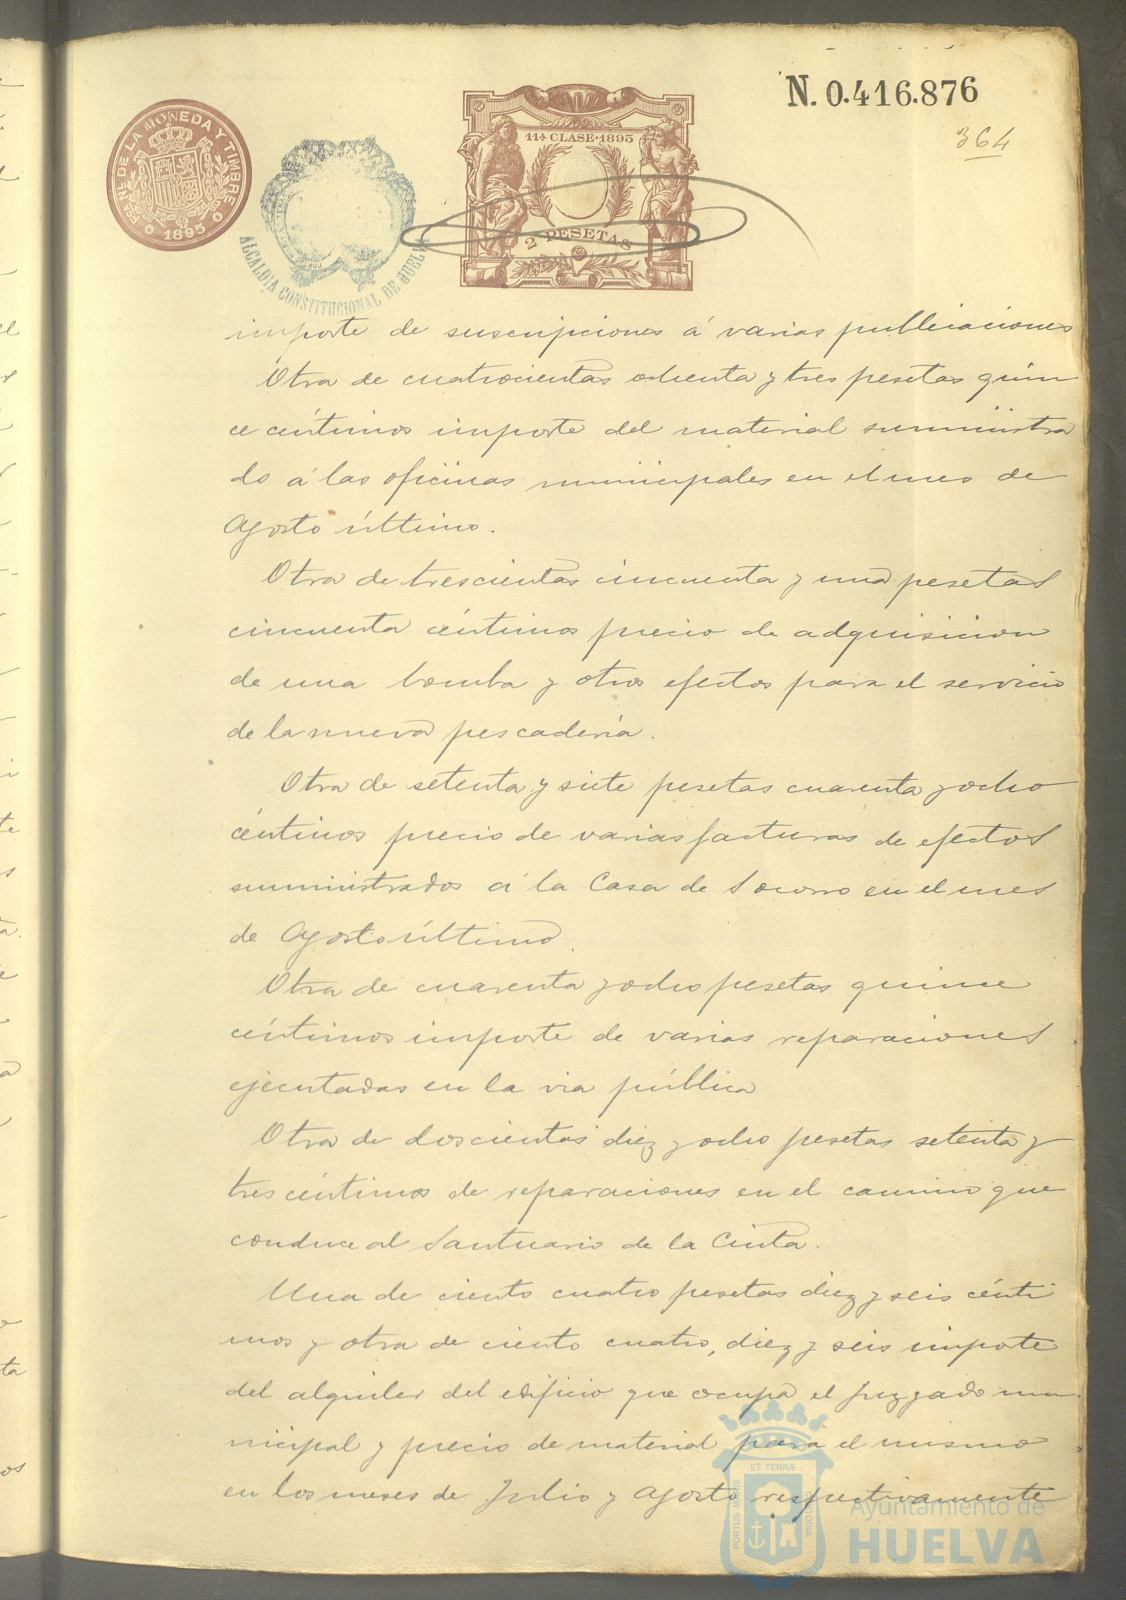 N. 0.416.876
364
FCA. NL. DE LA MONEDA Y TIMBRE
1895
ALCALDIA CONSTITUCIONAL DE HUELVA
11ª CLASE·1895
2 PESETAS
importe de suscripciones á varias publicaciones
Otra de cuatrocientas ochenta y tres pesetas quin
ce céntimos importe del material suministra
do á las oficinas municipales en el mes de
Agosto último.
Otra de trescientas cincuenta y una pesetas
cincuenta céntimos precio de adquisicion
de una bomba y otros efectos para el servicio
de la nueva pescadería.
Otra de setenta y siete pesetas cuarenta y ocho
céntimos precio de varias facturas de efectos
suministrados á la Casa de Socorro en el mes
de Agosto último.
Otra de cuarenta y ocho pesetas quince
céntimos importe de varias reparaciones
ejecutadas en la via pública
Otra de doscientas diez y ocho pesetas setenta y
tres céntimos de reparaciones en el camino que
conduce al Santuario de la Cinta.
Una de ciento cuatro pesetas diez y seis cénti
mos y otra de ciento cuatro, diez y seis importe
del alquiler del edificio que ocupa el Juzgado mu
nicipal y precio de material para el mismo
en los meses de Julio y Agosto respectivamente
PORTUS MARIS
ET TERRÆ
CUSTODIA
Ayuntamiento de
HUELVA